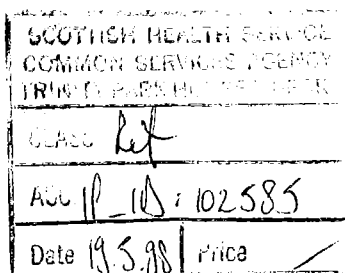 SCOTTISH HEALTH SERVICE
COMMON SERVICES AGENCY
TRINITY PARK HOUSE
CLASS Ref
ACC 102585
Date 19.5.98 Price /